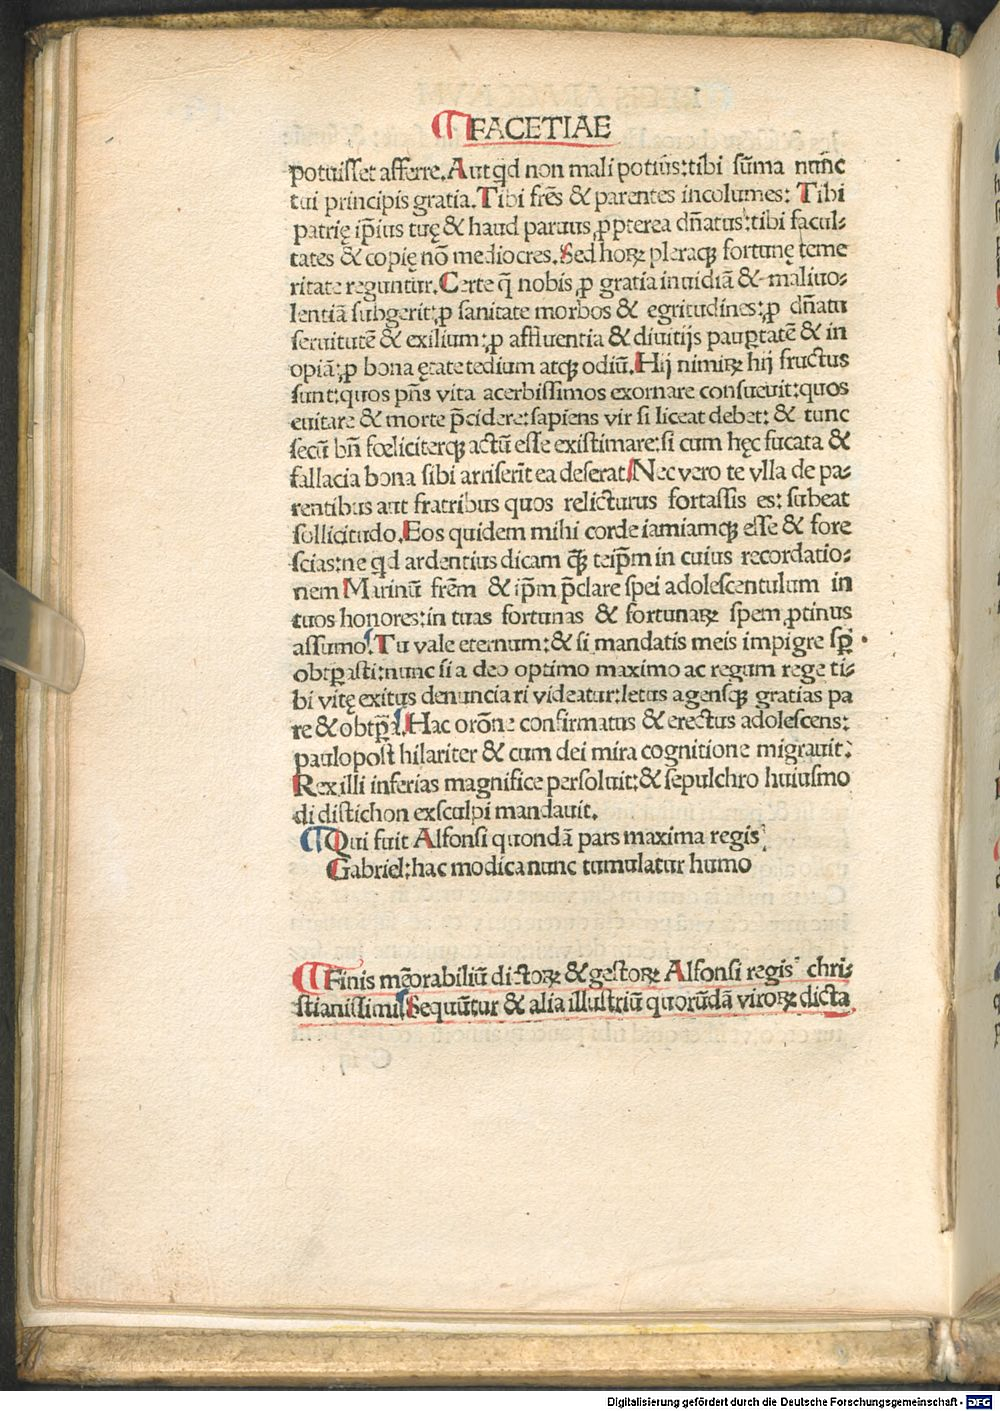 ¶FACETIAE
potuisset afferre. Aut qd non mali potiũs: tibi sũma nunc
tui principis gratia. Tibi frẽs & parentes incolumes: Tibi
patrię ip̃ius tuę & haud paruus ꝓpterea dñatus: tibi facul-
tates & copię nõ mediocres. Sed hoꝝ pleraqꝫ fortunę teme
ritate reguntur. Certe q̃ nobis ꝓ gratia inuidiã & maliuo-
lentiã subgerit: ꝓ sanitate morbos & egritudines: ꝓ dñatu
seruitutẽ & exilium: ꝓ affluentia & diuitijs paupꝑtatẽ & in
opiã: ꝓ bona ętate tedium atqꝫ odiũ. Hij nimiꝝ hij fructus
sunt: quos pñs vita acerbissimos exornare consueuit: quos
euitare & morte p̃cidere: sapiens vir si liceat debet: & tunc
secũ bñ fœliciterqꝫ actũ esse existimare: si cum hęc fucata &
fallacia bona sibi arriserĩt ea deserat. Nec vero te vlla de pa-
rentibus aut fratribus quos relicturus fortassis es: subeat
sollicitudo. Eos quidem mihi corde iamiamqꝫ esse & fore
scias: ne qd ardentius dicam q̃ꝫ teip̃m in cuius recordatio-
nem Marinũ frẽm & ip̃m p̃clare spei adolescentulum in
tuos honores: in tuas fortunas & fortunaꝝ spem ꝓtinus
assumo. Tu vale eternum: & si mandatis meis impigre sꝑ
obtꝑasti: nunc si a deo optimo maximo ac regum rege ti-
bi vitę exitus denunciari videatur: letus agensqꝫ gratias pa
re & obtꝑa. Hac orõne confirmatus & erectus adolescens:
paulopost hilariter & cum dei mira cognitione migrauit:
Rex illi inferias magnifice persoluit: & sepulchro huiusmo
di distichon exsculpi mandauit.
¶Qui fuit Alfonsi quondã pars maxima regis
Gabriel: hac modica nunc tumulatur humo
¶Finis mẽorabiliũ dictoꝝ & gestoꝝ Alfonsi regis chri-
stianissimi. Sequũtur & alia illustriũ quorũdã viroꝝ dicta
Digitalisierung gefördert durch die Deutsche Forschungsgemeinschaft - DFG